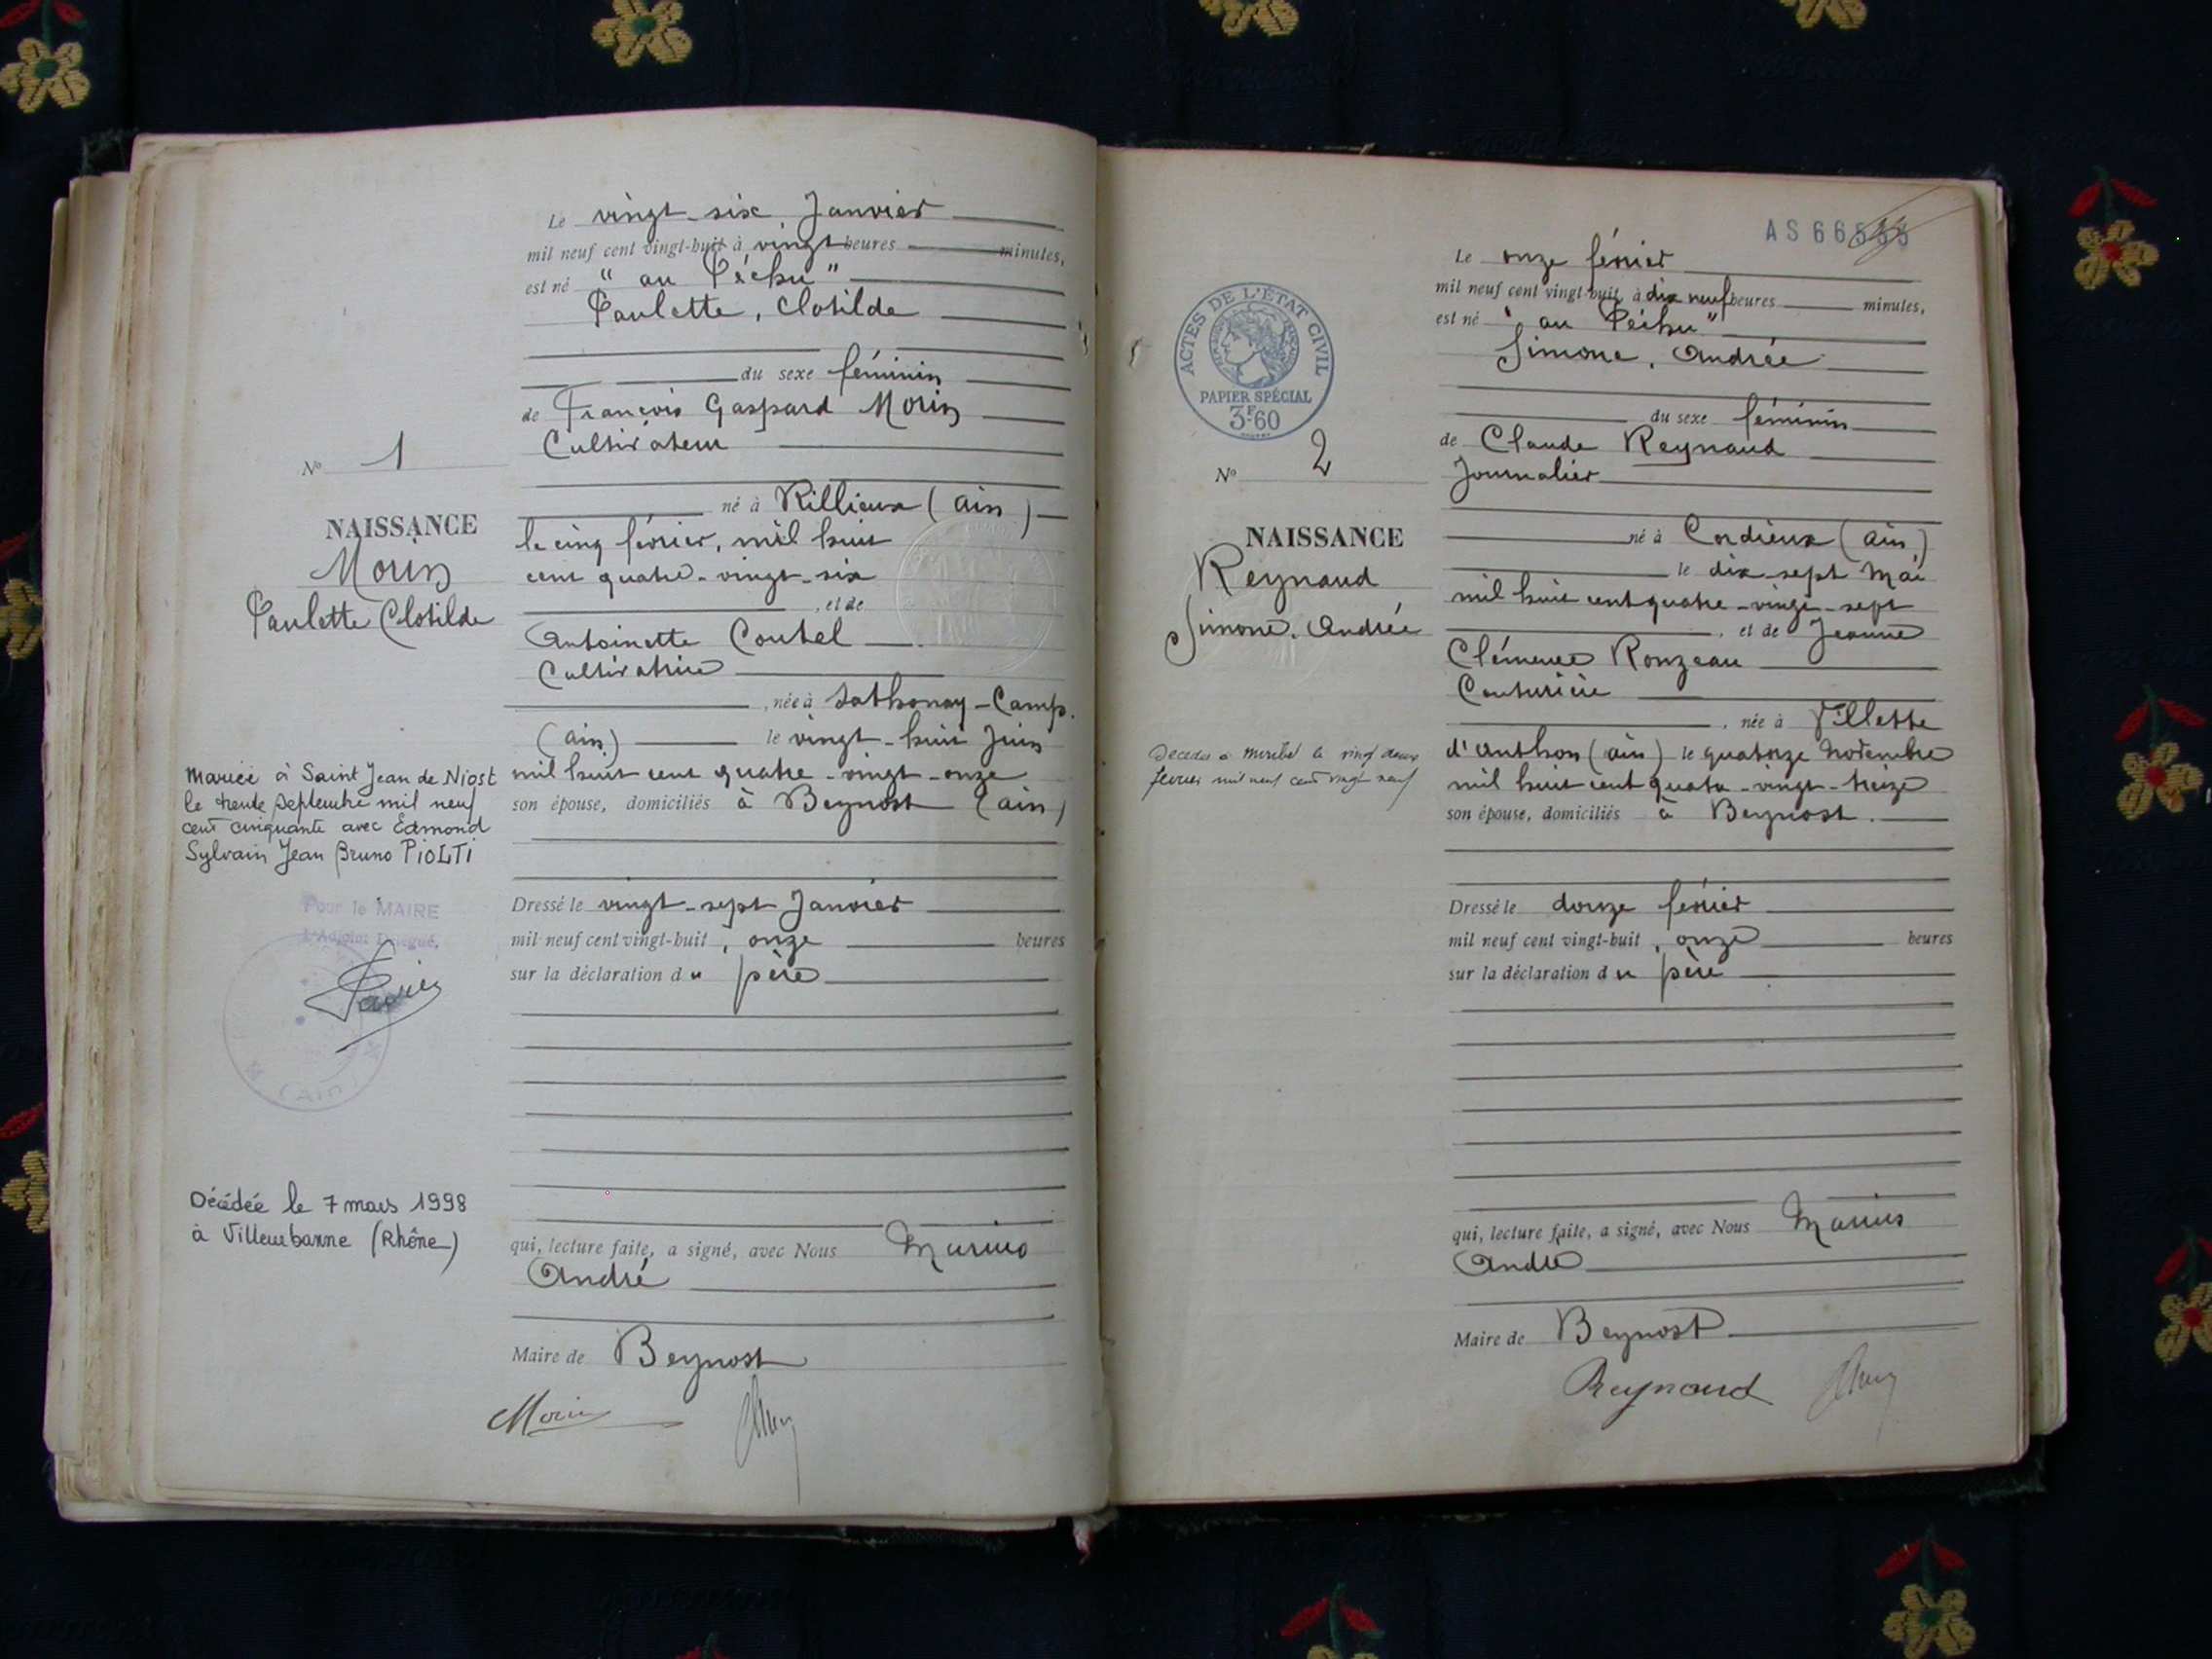 Le vingt-six Janvier
mil neuf cent vingt-huit à vingt heures minutes,
est né "au Péchu"
Paulette, Clotilde
du sexe féminin
de François Gaspard Morin
Cultivateur
né à Rillieux (Ain)
le cinq février, mil huit
cent quatre-vingt-six
, et de
Antoinette Coutel
Cultivatrice
, née à Sathonay-Camp.
(Ain) le vingt-huit Juin
mil huit cent quatre-vingt-onze
son épouse, domiciliés à Beynost (Ain)
Dressé le vingt-sept Janvier
mil neuf cent vingt-huit, onze heures
sur la déclaration du père
qui, lecture faite, a signé, avec Nous Marius
André
Maire de Beynost
Morin
No 1
NAISSANCE
Morin
Paulette Clotilde
Mariée à Saint Jean de Niost
le trente Septembre mil neuf
cent cinquante avec Edmond
Sylvain Jean Bruno PIOLTI
Pour le MAIRE
L'Adjoint Délégué,
(Ain)
Décédée le 7 mars 1998
à Villeurbanne (Rhône)
AS 66
ACTES DE L'ÉTAT CIVIL
PAPIER SPÉCIAL
3F60
No 2
NAISSANCE
Reynaud
Simone, Andrée
Décédée à Miribel le vingt deux
février mil neuf cent vingt neuf
Le onze février
mil neuf cent vingt-huit, à dix neuf heures minutes,
est né "au Péchu"
Simone, Andrée
du sexe féminin
de Claude Reynaud
Journalier
né à Cordieux (Ain,)
le dix-sept Mai
mil huit cent quatre-vingt-sept
, et de Jeanne
Clémence Ronzeau
Couturière
, née à Villette
d'Anthon (Ain) le quatorze Novembre
mil huit cent quatre-vingt-treize
son épouse, domiciliés à Beynost.
Dressé le douze février
mil neuf cent vingt-huit, onze heures
sur la déclaration du père
qui, lecture faite, a signé, avec Nous Marius
André
Maire de Beynost
Reynaud